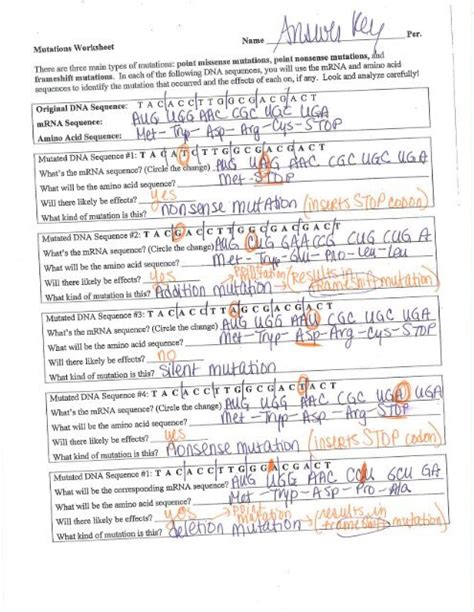 Answer Key
Mutations Worksheet Name Per.
There are three main types of mutations: point missense mutations, point nonsense mutations, and
frameshift mutations. In each of the following DNA sequences, you will use the mRNA and amino acid
sequences to identify the mutation that occurred and the effects of each on, if any. Look and analyze carefully!
Original DNA Sequence: T A C A C C T T G G C G A C G A C T
mRNA Sequence: AUG UGG AAC CGC UGC UGA
Amino Acid Sequence: Met-Tryp-Asp-Arg-Cys-STOP
Mutated DNA Sequence #1: T A C A T C T T G G C G A C G A C T
What's the mRNA sequence? (Circle the change) AUG UAG AAC CGC UGC UGA
What will be the amino acid sequence? Met-STOP
Will there likely be effects? yes
What kind of mutation is this? nonsense mutation (inserts STOP codon)
Mutated DNA Sequence #2: T A C G A C C T T G G C G A C G A C T
What's the mRNA sequence? (Circle the change) AUG CUG GAACCG CUG CUG A
What will be the amino acid sequence? Met-Tryp-Glu-Pro-Leu-Leu
Will there likely be effects? yes
What kind of mutation is this? Addition mutation (results in frameshift mutation)
Mutated DNA Sequence #3: T A C A C C T T A G C G A C G A C T
What's the mRNA sequence? (Circle the change) AUG UGG AAU CGC UGC UGA
What will be the amino acid sequence? Met-Tryp-Asp-Arg-Cys-STOP
Will there likely be effects? no
What kind of mutation is this? Silent mutation
Mutated DNA Sequence #4: T A C A C C T T G G C G A C T A C T
What's the mRNA sequence? (Circle the change) AUG UGG AAC CGC UGA UGA
What will be the amino acid sequence? Met-Tryp-Asp-Arg-STOP
Will there likely be effects? yes
What kind of mutation is this? Nonsense mutation (inserts STOP codon)
Mutated DNA Sequence #1: T A C A C C T T G G G A C G A C T
What will be the corresponding mRNA sequence? AUG UGG AAC CCU GCU GA
What will be the amino acid sequence? Met-Tryp-Asp-Pro-Ala
Will there likely be effects? yes point mutation (results in
What kind of mutation is this? deletion mutation frameshift mutation)